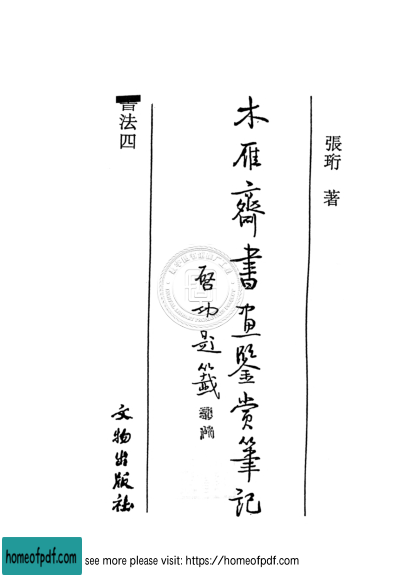 張珩 著
木雁齋書畫鑒賞筆記
啓功題籤
書法四
文物出版社
homeofpdf.com
see more please visit: https://homeofpdf.com